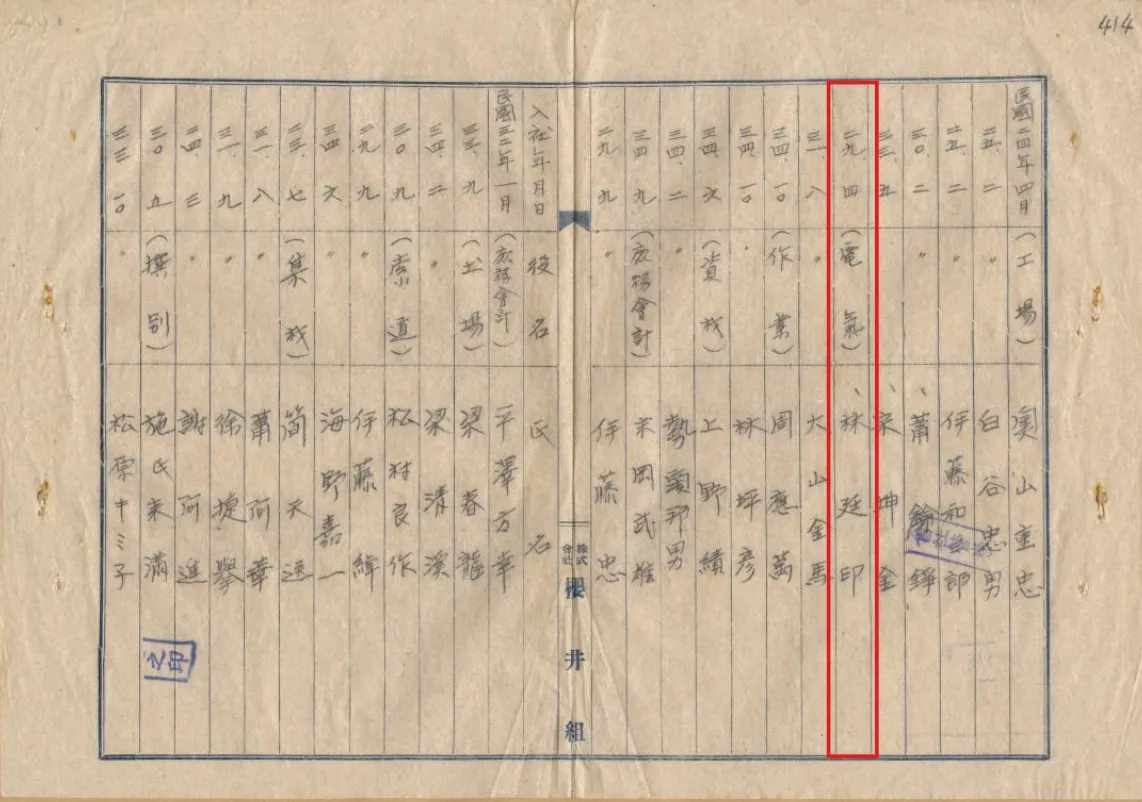 414
民國二四年四月 (工場) 奧山重忠
二五、二 〃 白谷忠男
二五、二 〃 伊藤和三郎
三〇、二 〃 、蕭錦錚
三三、五 〃 、宋坤金
二九、四 (電氣) 、林廷印
三一、八 〃 大山金馬
三四、一〇 (作業) 周應萬
三四、一〇 〃 林坪彥
三四、六 (資材) 上野績
三四、二 〃 勢頭邦男
三四、九 (庶務會計) 末岡武雄
二九、九 〃 伊藤忠
株式會社 櫻井組
入社年月日 役名 氏名
民國三三年一月 (庶務會計) 平澤方幸
三三、九 (土場) 梁春龍
三四、二 〃 梁清溪
三〇、九 (索道) 松村良作
二九、九 〃 伊藤緯
三四、六 〃 海野嘉一
三三、七 (集材) 簡天送
三一、八 〃 蕭阿華
三一、九 〃 徐捷擧
三四、三 〃 謝阿進
三〇、五 (撰別) 施氏來滿
三三、一〇 〃 松原中ミ子